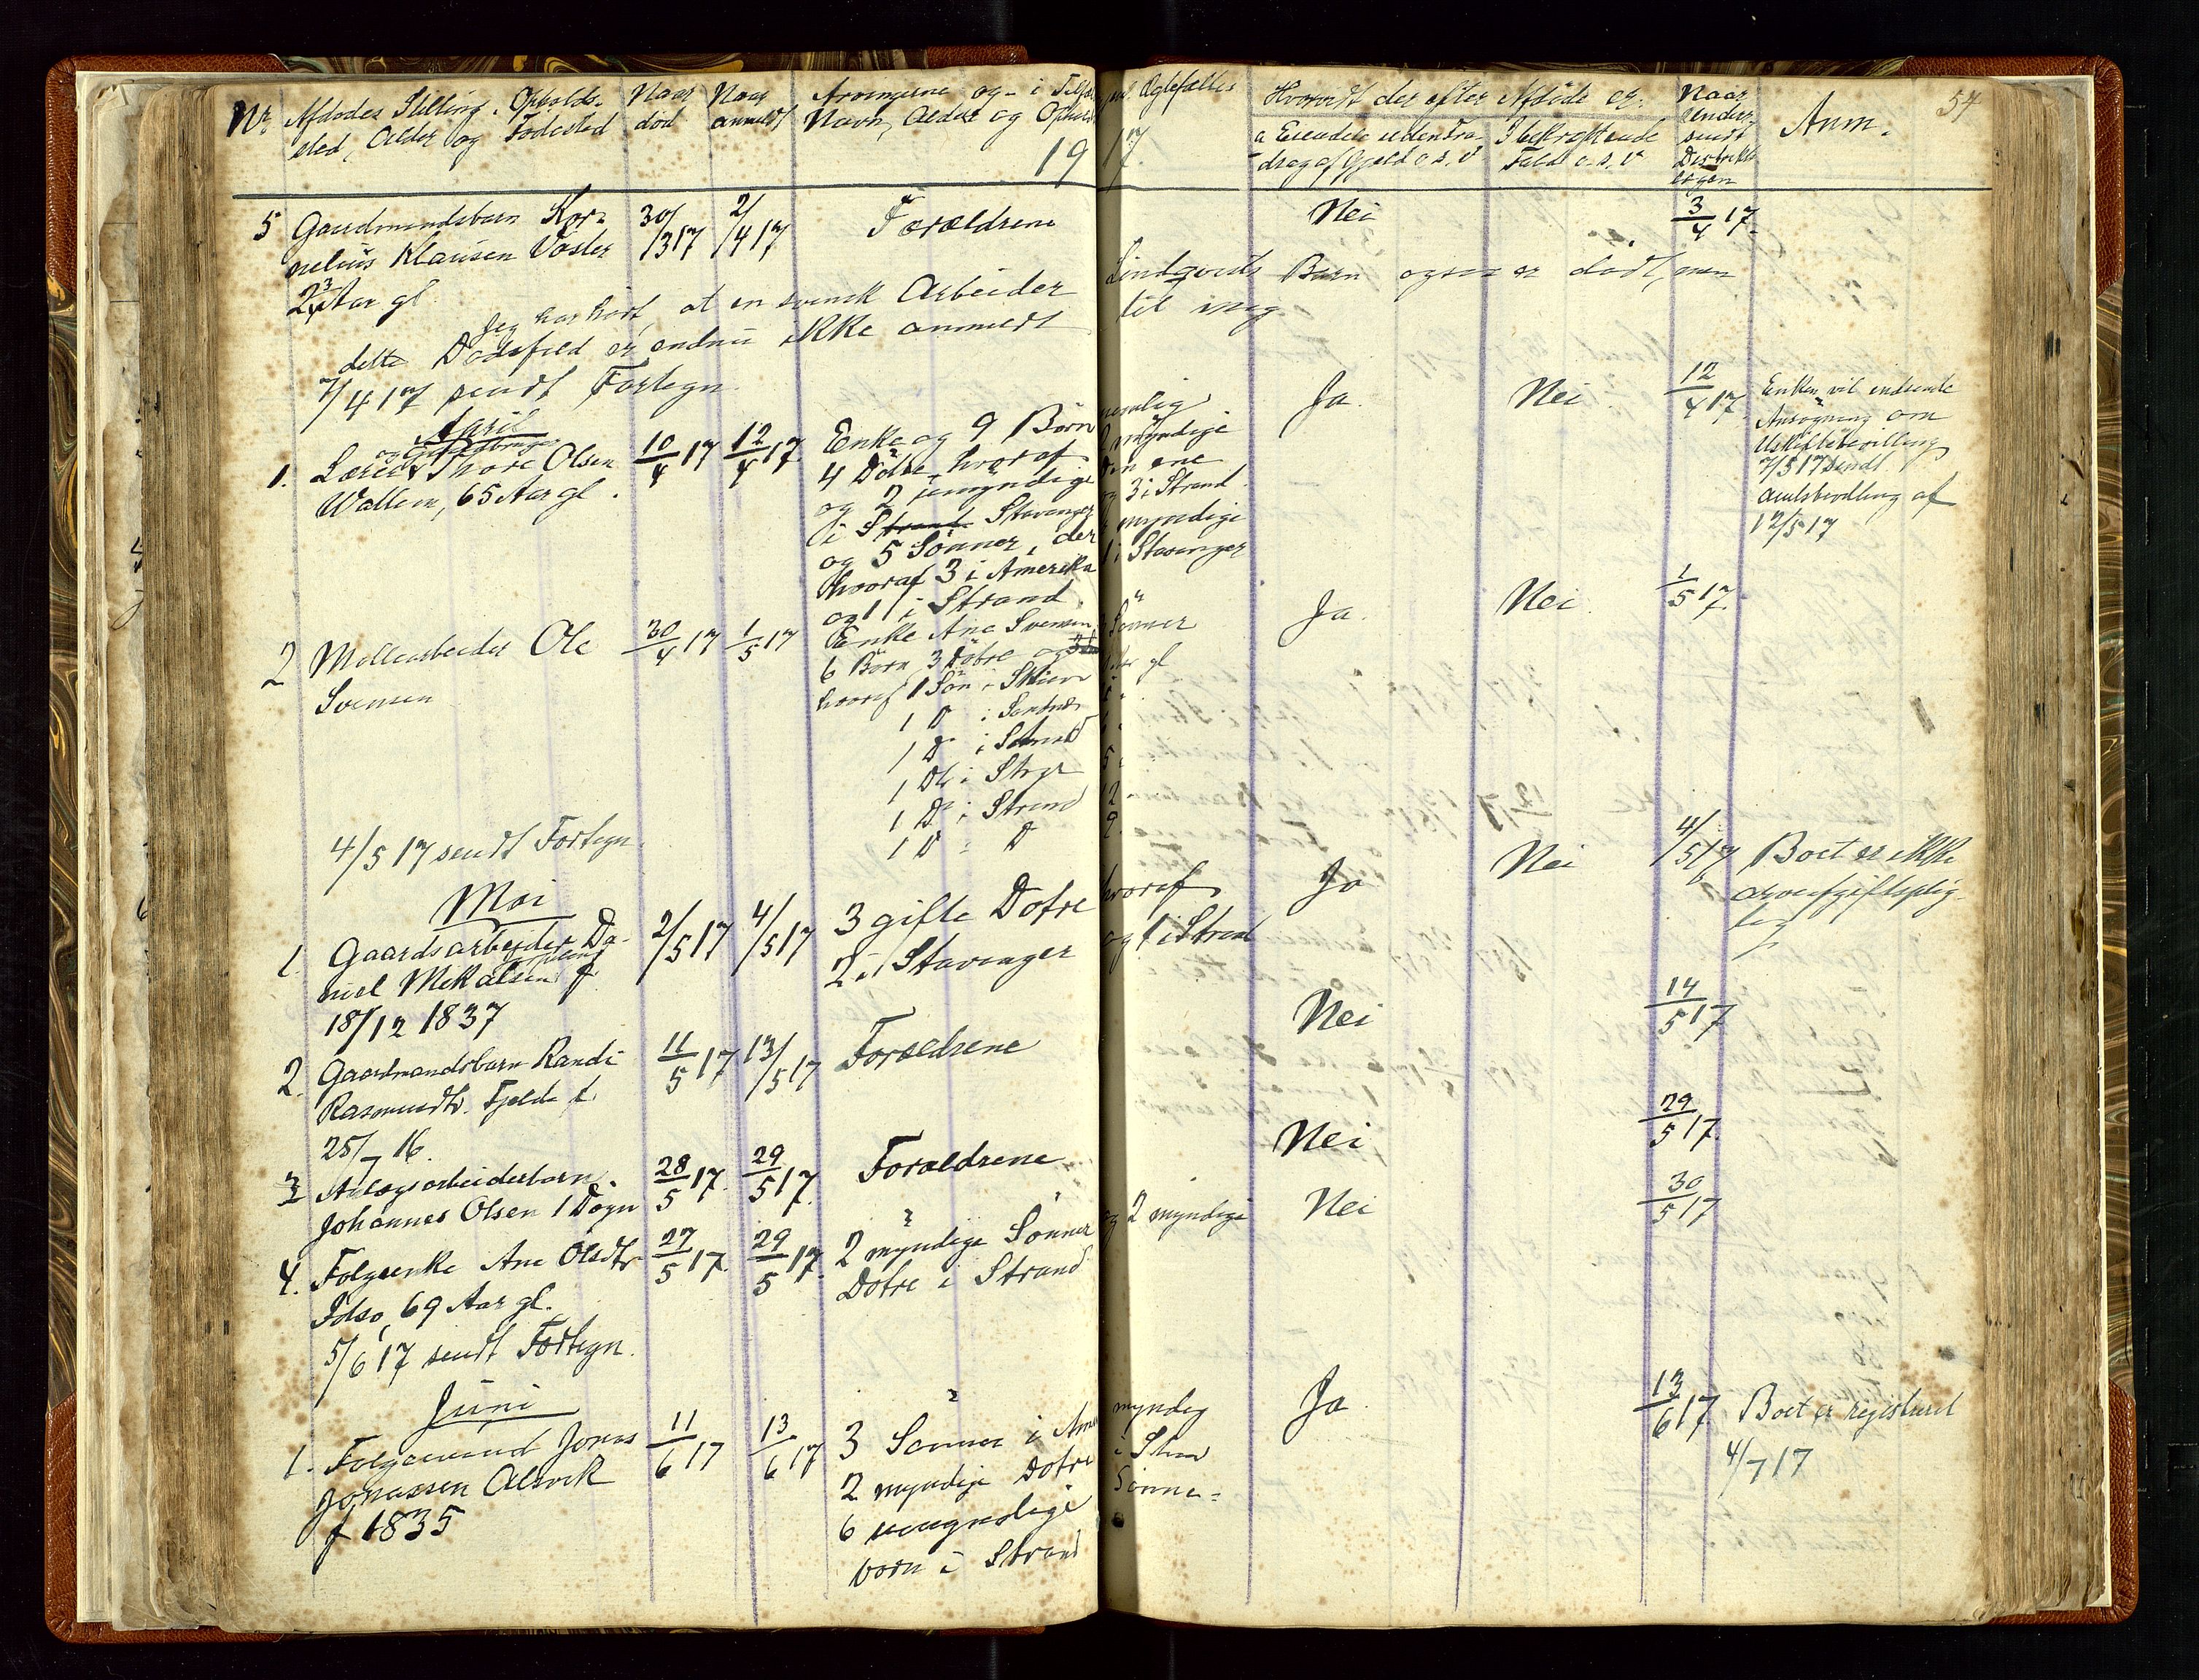 54
Nr. Afdødes Stilling, Opholds-
sted, Alder og Fødested
Naar
død
Naar
anmeldt
Arvingerne og i Tilfæl Ægtefælles
Navn, Alder og Ophold
1917.
Hvorvidt der efter Afdøde er
a Eiendele uden Fra-
drag af Gjæld o.s.v
I bekræftende
Fald o.s.v
Naar
indsendt
Anm.
5 Gaardmandsbarn Kor-
nelius Klausen Vaster
2 3/4 Aar gl
30/3 17
2/4 17
Forældrene
Nei
3/4 17.
Jeg har hørt, at en svensk Arbeider Lindqvists Barn ogsaa er dødt, men
dette Dødsfald er endnu ikke anmeldt til mig
7/4 17 sendt Fortegn.
April
1. Lærer og Gaardbruger Thore Olsen
Wallem, 65 Aar gl.
10/4 17
12/4 17
Enke og 9 Børn nemlig
4 Døtre, hvoraf 2 myndige
og 2 umyndige den ene
i Strand Stavanger og 3 i Strand
og 5 Sønner, der myndige
hvoraf 3 i Amerika 1 i Stavanger
og 1 i Strand
Ja.
Nei.
12/4 17
Enken vil indsende
Ansøgning om
Uskiftebevilling
7/5 17 sendt
amtsbevilling af
12/5 17
2 Møllearbeider Ole
Svensen
30/4 17
1/5 17
Enke Ane Svensen
6 Børn 3 Døtre og 3 Sønner
hvoraf 1 Søn i Skien Aar gl
1 D i Sandnes
1 D i Strand
1 Dt i Stvgr
1 D i Strand 12
1 D : D 9.
Ja.
Nei.
1/5 17.
4/5 17 sendt Fortegn.
Mai
1. Gaardsarbeider Da-
niel Mikalsen f.
18/12 1837
2/5 17
4/5 17
3 gifte Døtre hvoraf
2 i Stavanger og 1 i Strand
Ja
Nei
4/5 17
Boet er ikke
arveafgiftsplig-
tig
2. Gaardmandsbarn Randi
Rasmusdtr. Fjelde f.
25/7 16.
11/5 17
13/5 17
Forældrene
Nei
14/5 17
3 Anlægsarbeiderbarn
Johannes Olsen 1 Døgn
28/5 17.
29/5 17.
Forældrene
Nei
29/5 17.
4. Følgeenke Ane Olsdtr
Idsø, 69 Aar gl.
27/5 17.
29/5 17.
2 myndige Sønner og 2 myndige
Døtre i Strand
Nei
30/5 17
5/6 17 sendt Fortegn.
Juni
1. Følgemand Jonas
Jonassen Alsvik
f 1835
11/6 17
13/6 17
3 Sønner i Ame myndig
2 myndige Døtre i Stran
6 umyndige Sønne-
børn i Strand
Ja.
13/6 17
Boet er registreret
4/7 17